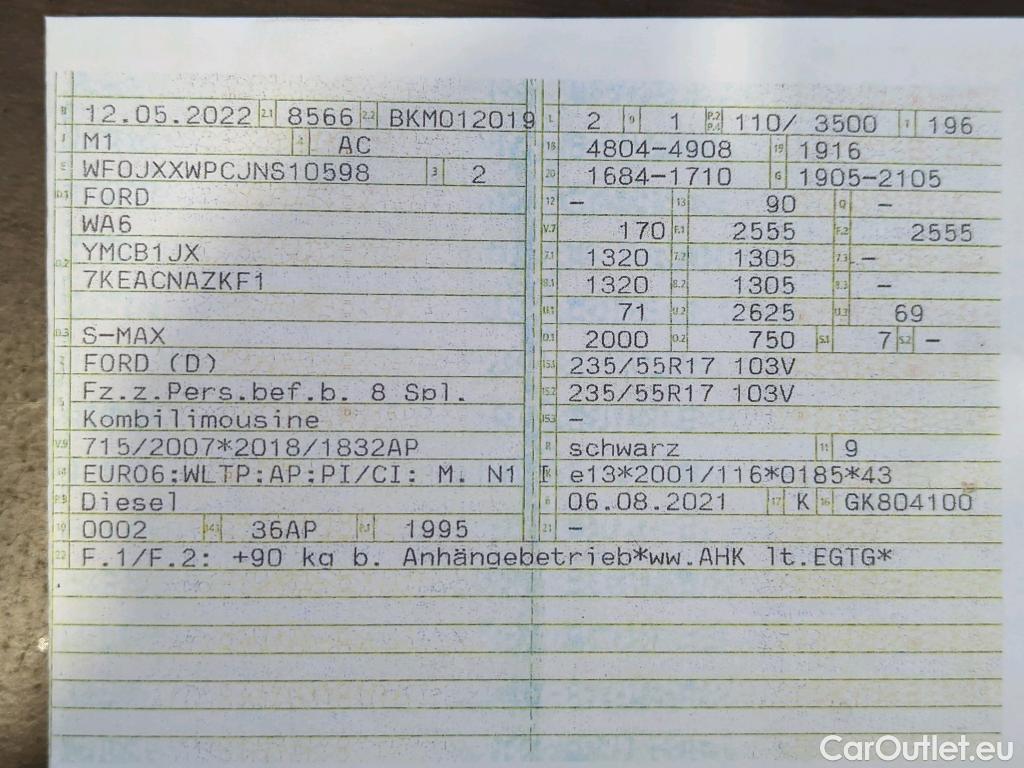 B 12.05.2022 2.1 8566 2.2 BKM012019
J M1 4 AC
E WF0JXXWPCJNS10598 3 2
D.1 FORD
WA6
D.2 YMCB1JX
7KEACNAZKF1
D.3 S-MAX
2 FORD (D)
5 Fz.z.Pers.bef.b. 8 Spl.
Kombilimousine
V.9 715/2007*2018/1832AP
14 EURO6:WLTP:AP:PI/CI: M. N1 I
P.3 Diesel
10 0002 14.1 36AP P.1 1995
22 F.1/F.2: +90 kg b. Anhängebetrieb*ww.AHK lt.EGTG*
L 2 9 1 P.2 P.4 110/ 3500 T 196
18 4804-4908 19 1916
20 1684-1710 G 1905-2105
12 - 13 90 Q -
V.7 170 F.1 2555 F.2 2555
7.1 1320 7.2 1305 7.3 -
8.1 1320 8.2 1305 8.3 -
U.1 71 U.2 2625 U.3 69
O.1 2000 O.2 750 S.1 7 S.2 -
15.1 235/55R17 103V
15.2 235/55R17 103V
15.3 -
R schwarz 11 9
K e13*2001/116*0185*43
6 06.08.2021 17 K 16 GK804100
21 -
CarOutlet.eu